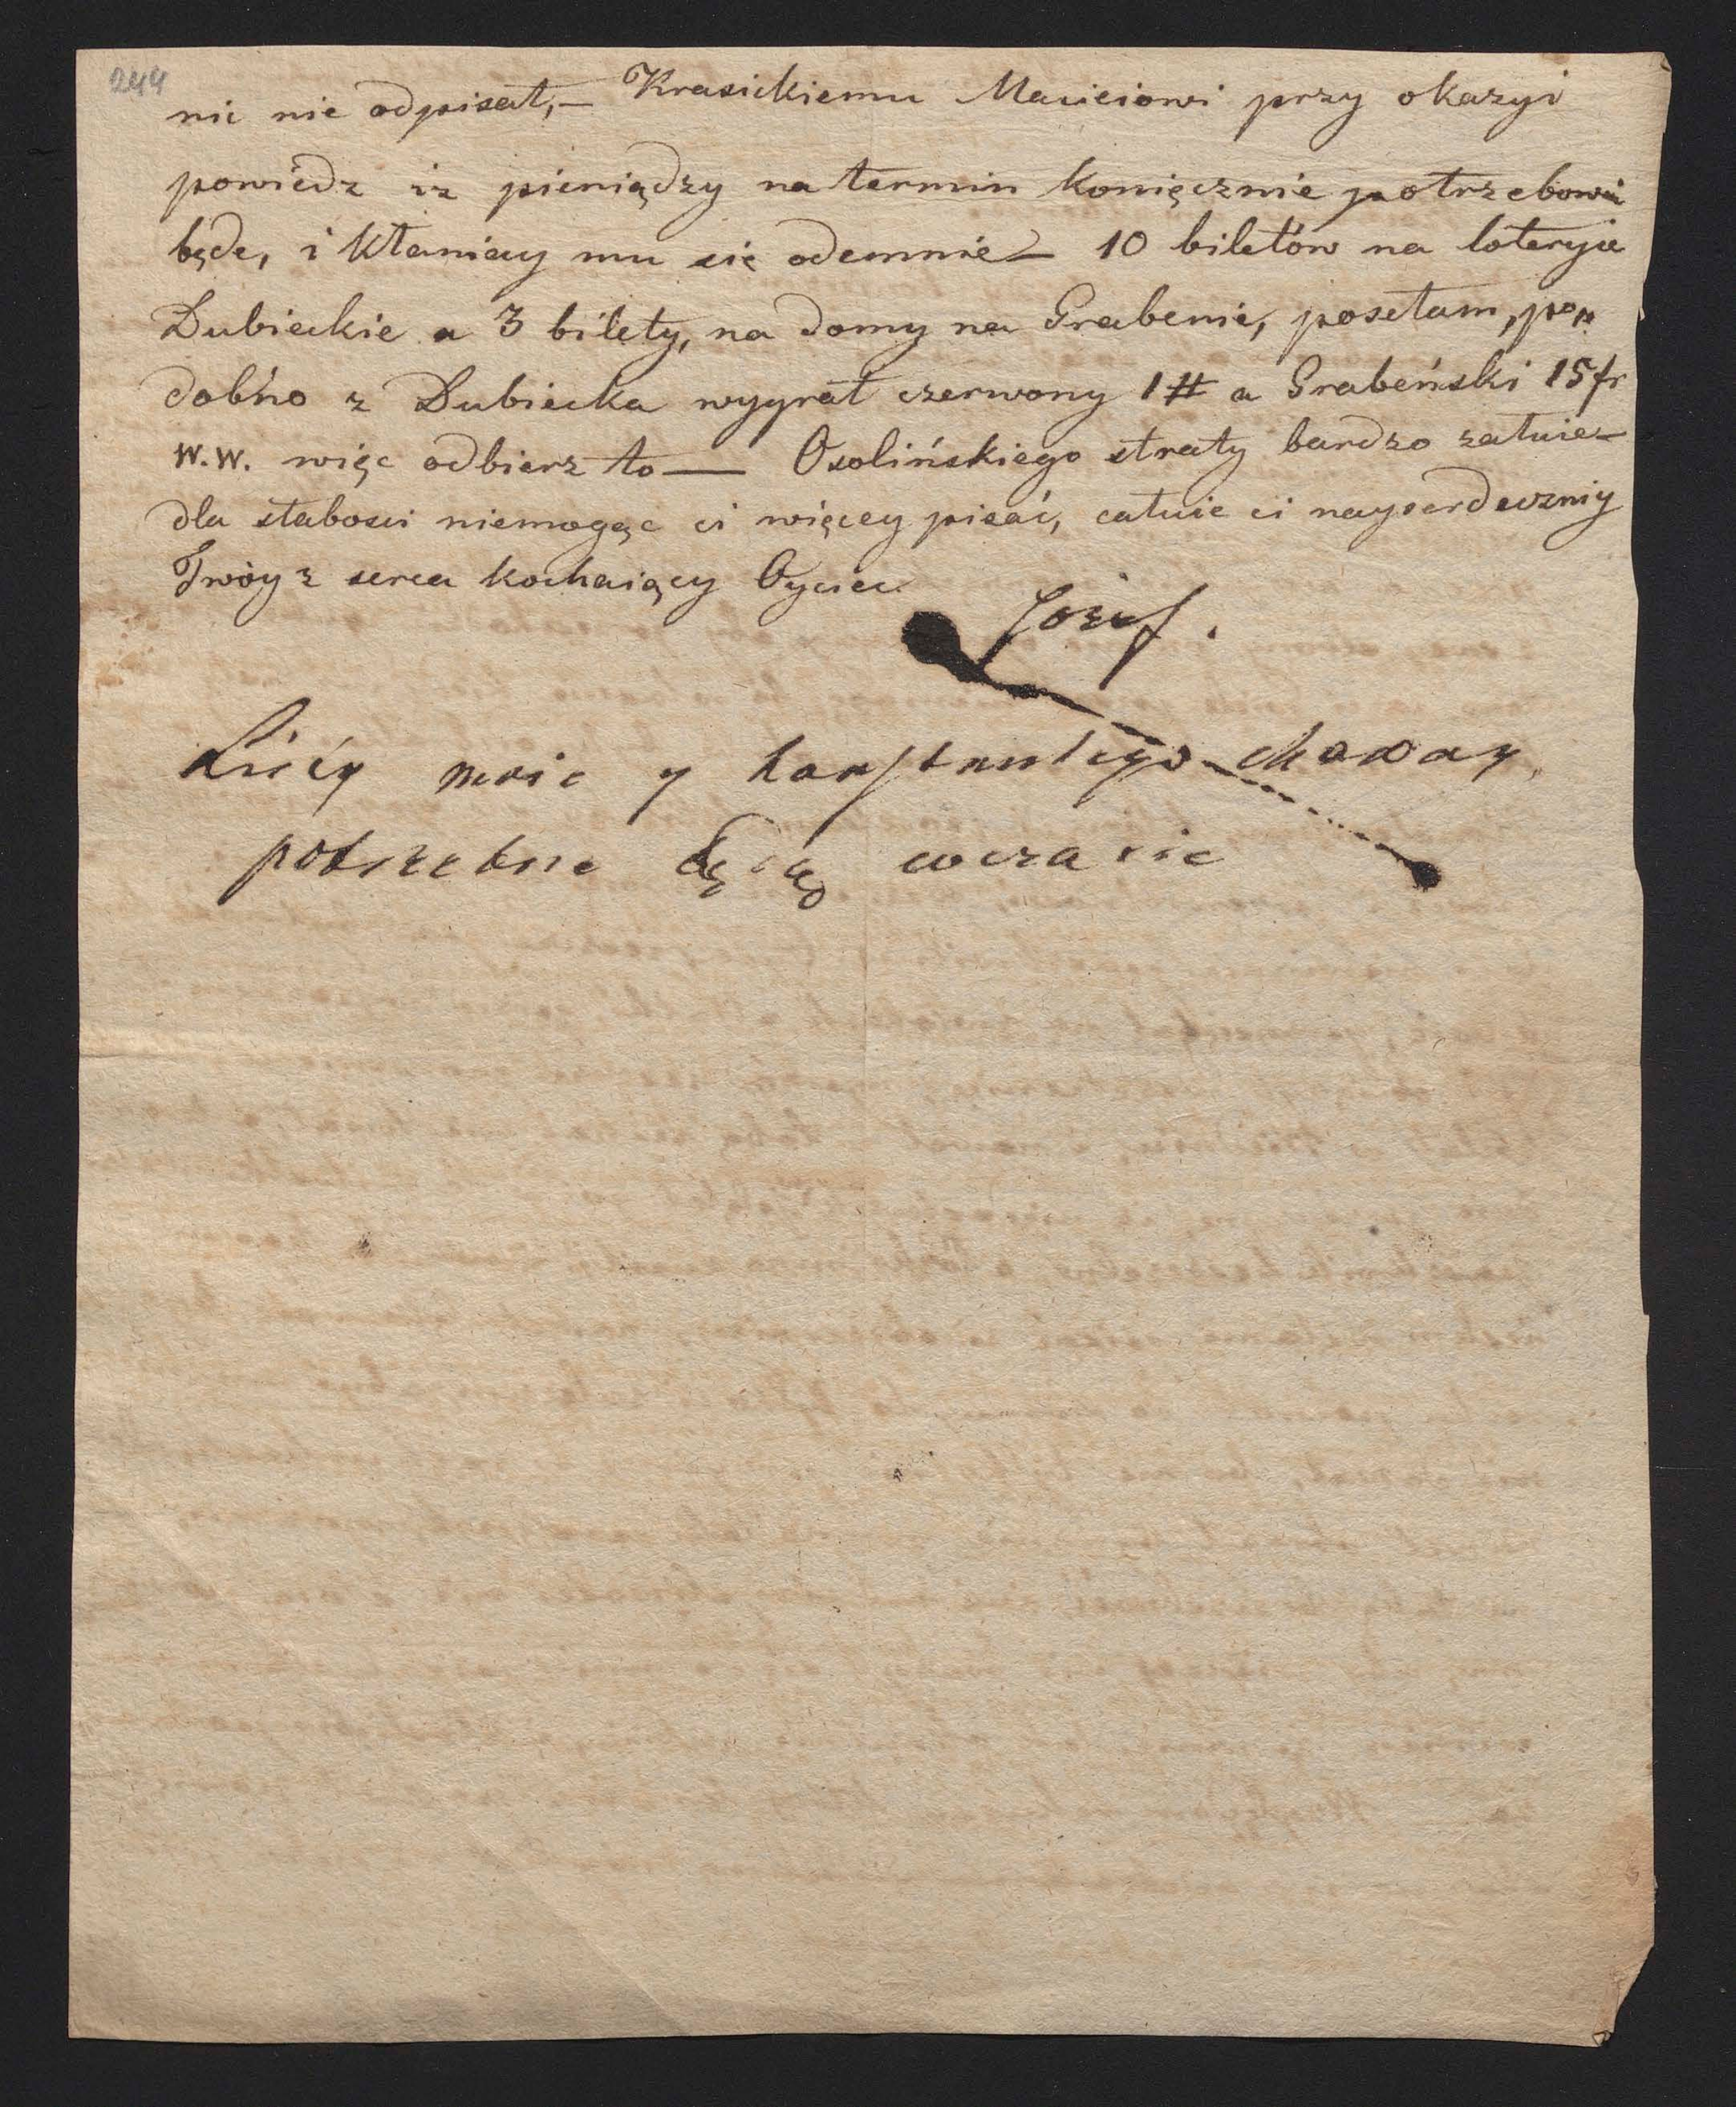 244
nic nie odpisał,— Krasickiemu Maciejowi przy okazyi
powiedz iz pieniądzy na termin konięcznie potrzebowai
będe, i kłaniay mu się odemnie— 10 biletów na loteryie
Dubieckie a 3 bilety, na domy na Grabenie, posełam, po„
dobno z Dubiecka wygrał czerwony 1 # a Grabeński 15 fr
W.W. więc odbierz to — Osolińskiego straty bardzo załuie—
dla słabosci niemogąc ci więcey pisać, całuie ci nayserdeczniy
Twóy z serca kochaiący Oyciec
Jozef.
Listy moie y chaway
potrzebne będą wczasie